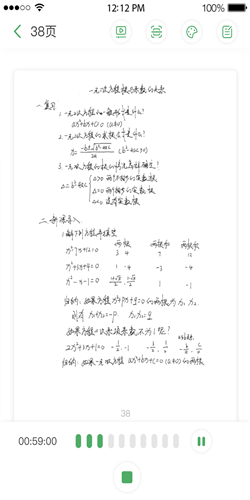 12:12 PM
100%
38页
一元二次方程根与系数的关系
一、复习
1.一元二次方程的一般形式是什么?
ax²+bx+c=0 (a≠0)
2.一元二次方程的求根公式是什么?
x= -b±√b²-4ac / 2a (b²-4ac≥0)
3.一元二次方程的根的情况怎样确定?
Δ=b²-4ac { Δ>0 两个不相等的实数根
Δ=0 两个相等的实数根
Δ<0 没有实数根
二、新课导入
1.解下列方程并填空
两根 两根和 两根积
x²-7x+12=0 3 4 7 12
x²+3x-4=0 1 -4 -3 -4
x²-x-1=0 1 -1
归纳: 如果方程x²+px+q=0的两根为x₁ x₂
则有 x₁+x₂=-p. x₁x₂=q
如果方程二次项系数不为1呢?
归纳: 如果一元二次方程 ax²+bx+c=0 (a≠0) 的两根
38
00:59:00